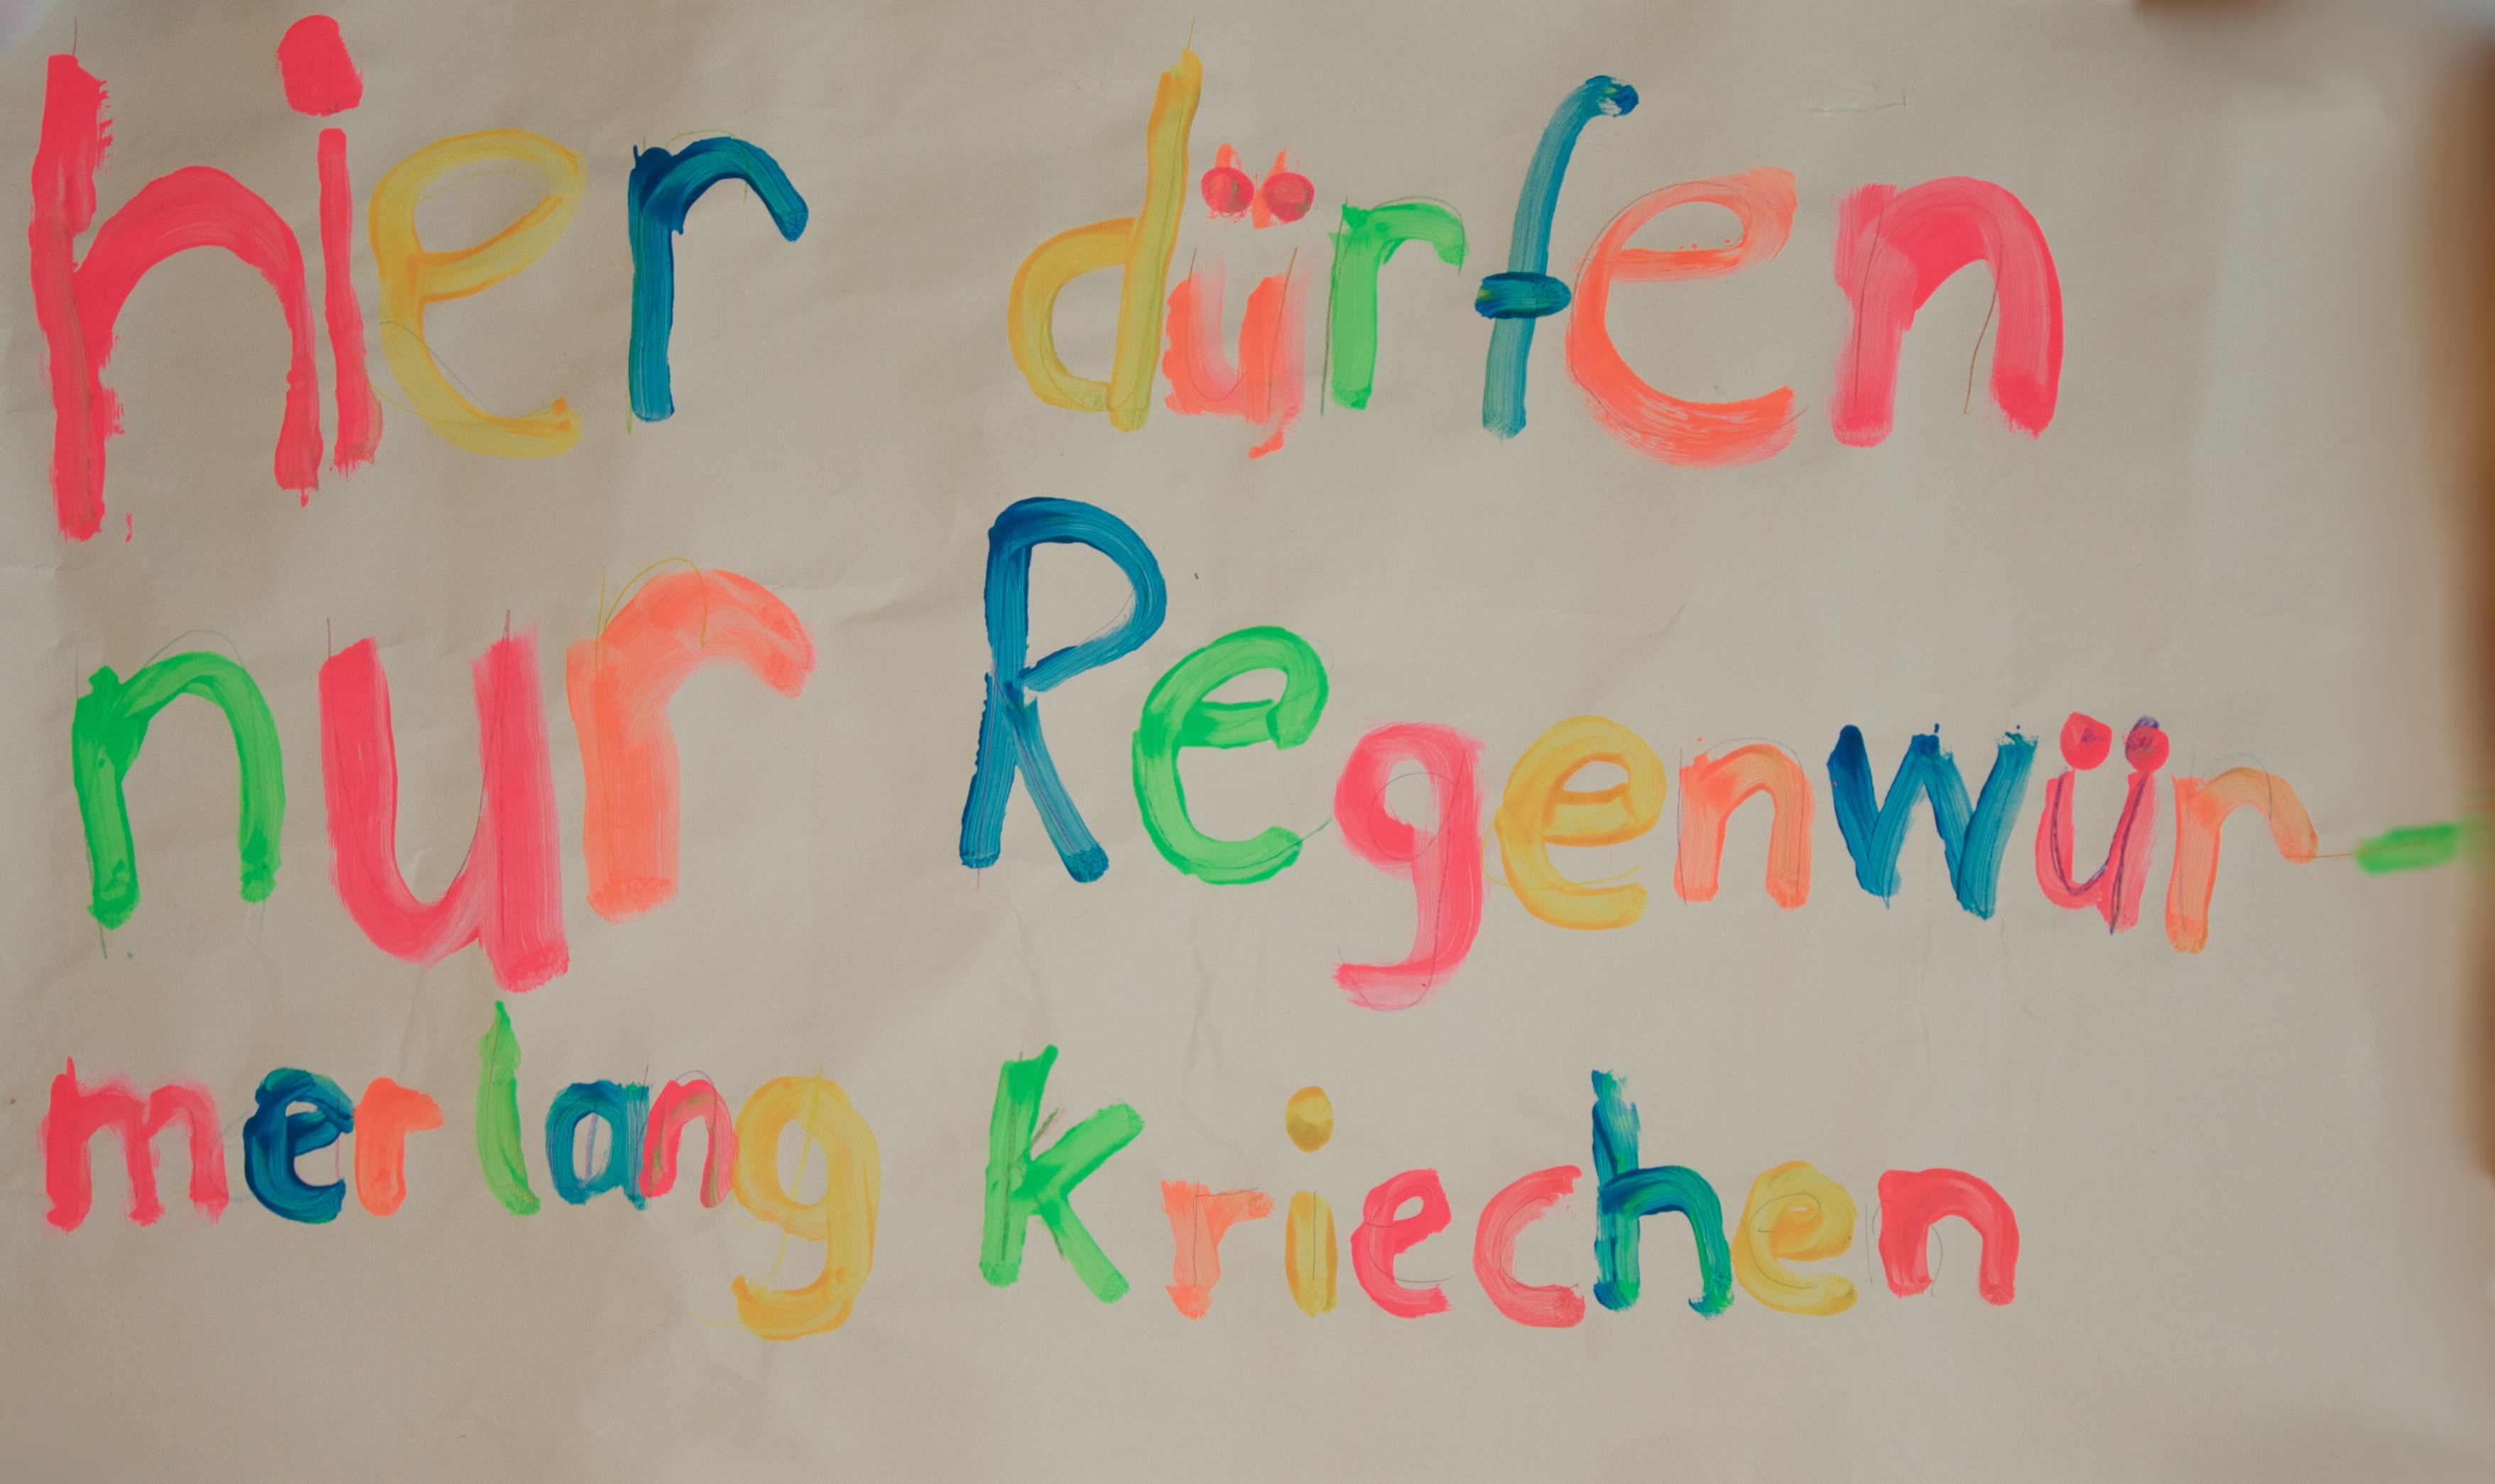 hier dürfen
nur Regenwür-
mer lang Kriechen